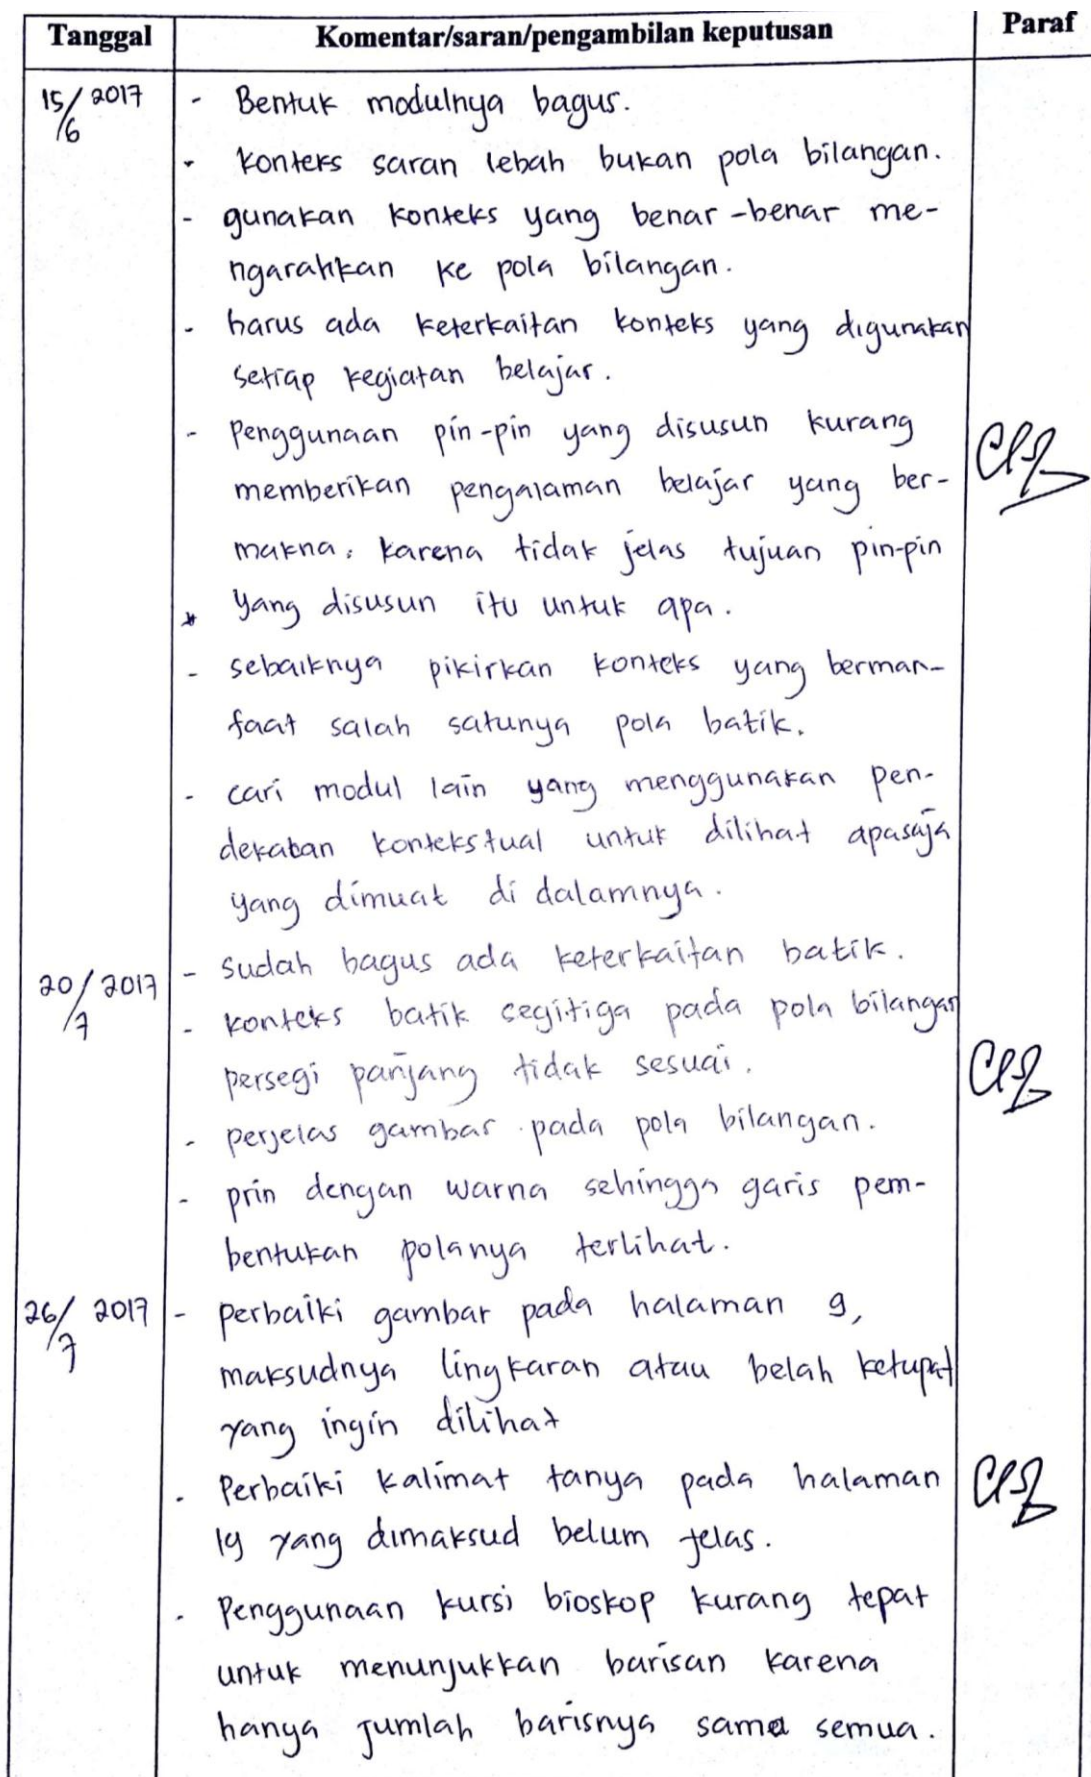 Tanggal Komentar/saran/pengambilan keputusan Paraf
15/6 2017 - Bentuk modulnya bagus.
- konteks saran lebah bukan pola bilangan.
- gunakan konteks yang benar-benar me-
ngarahkan ke pola bilangan.
- harus ada keterkaitan konteks yang digunakan
setiap kegiatan belajar.
- Penggunaan pin-pin yang disusun kurang
memberikan pengalaman belajar yang ber-
makna, karena tidak jelas tujuan pin-pin
* yang disusun itu untuk apa.
- sebaiknya pikirkan konteks yang berman-
faat salah satunya pola batik.
- cari modul lain yang menggunakan pen-
dekatan kontekstual untuk dilihat apasaja
yang dimuat di dalamnya.
- sudah bagus ada keterkaitan batik.
20/7 2017 - konteks batik segitiga pada pola bilangan
persegi panjang tidak sesuai.
- perjelas gambar pada pola bilangan.
- prin dengan warna sehingga garis pem-
bentukan polanya terlihat.
26/7 2017 - perbaiki gambar pada halaman 9,
maksudnya lingkaran atau belah ketupat
yang ingin dilihat
- Perbaiki kalimat tanya pada halaman
19 yang dimaksud belum jelas.
- Penggunaan kursi bioskop kurang tepat
untuk menunjukkan barisan karena
hanya jumlah barisnya sama semua.